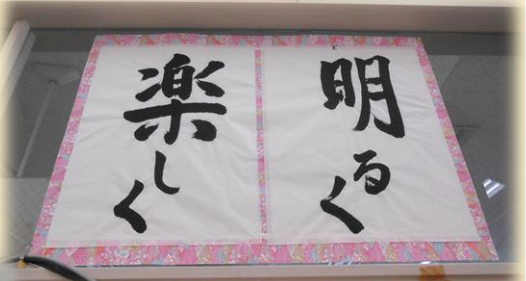 明るく
楽しく